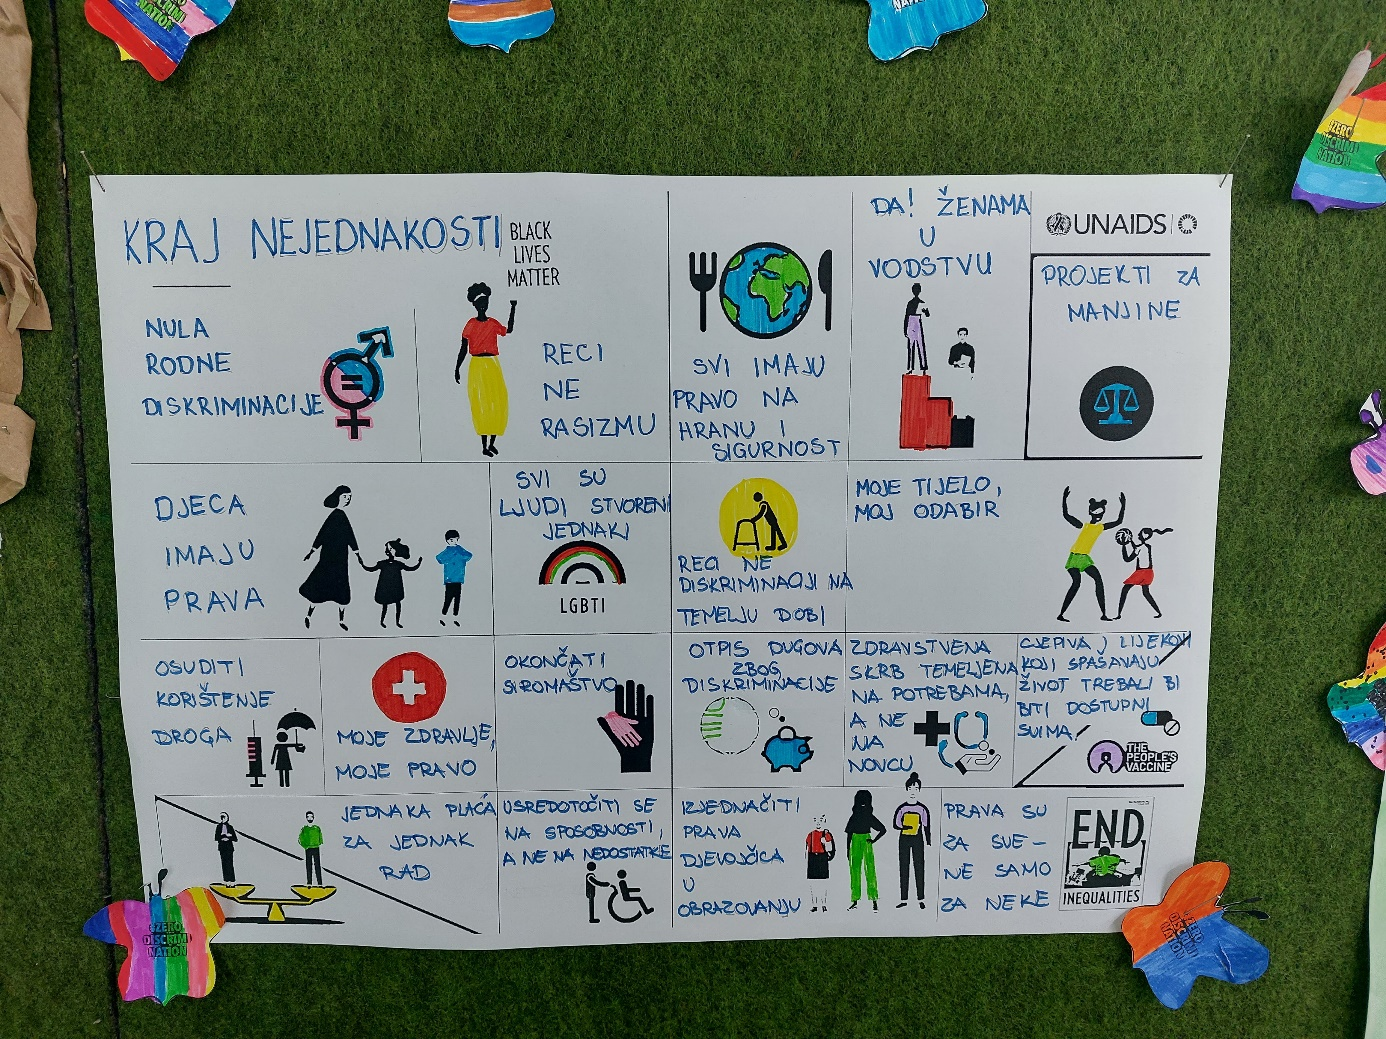 KRAJ NEJEDNAKOSTI
BLACK
LIVES
MATTER
NULA
RODNE
DISKRIMINACIJE
RECI
NE
RASIZMU
SVI IMAJU
PRAVO NA
HRANU I
SIGURNOST
DA! ŽENAMA
U
VODSTVU
UNAIDS
PROJEKTI ZA
MANJINE
DJECA
IMAJU
PRAVA
SVI SU
LJUDI STVORENI
JEDNAKI
LGBTI
RECI NE
DISKRIMINACIJI NA
TEMELJU DOBI
MOJE TIJELO,
MOJ ODABIR
OSUDITI
KORIŠTENJE
DROGA
MOJE ZDRAVLJE,
MOJE PRAVO
OKONČATI
SIROMAŠTVO
OTPIS DUGOVA
ZBOG
DISKRIMINACIJE
ZDRAVSTVENA
SKRB TEMELJENA
NA POTREBAMA,
A NE
NA
NOVCU
CJEPIVA, LIJEKOVI
KOJI SPAŠAVAJU
ŽIVOT TREBALI BI
BITI DOSTUPNI
SVIMA!
THE
PEOPLE'S
VACCINE
JEDNAKA PLAĆA
ZA JEDNAK
RAD
USREDOTOČITI SE
NA SPOSOBNOSTI,
A NE NA NEDOSTATKE
IZJEDNAČITI
PRAVA
DJEVOJČICA
U
OBRAZOVANJU
PRAVA SU
ZA SVE-
NE SAMO
ZA NEKE
END
INEQUALITIES
#ZERO
DISCRIMI
NATION
#ZERO
DISCRIMI
NATION
#ZERO
DISCRIMI
NATION
DISCRIMI
NATION